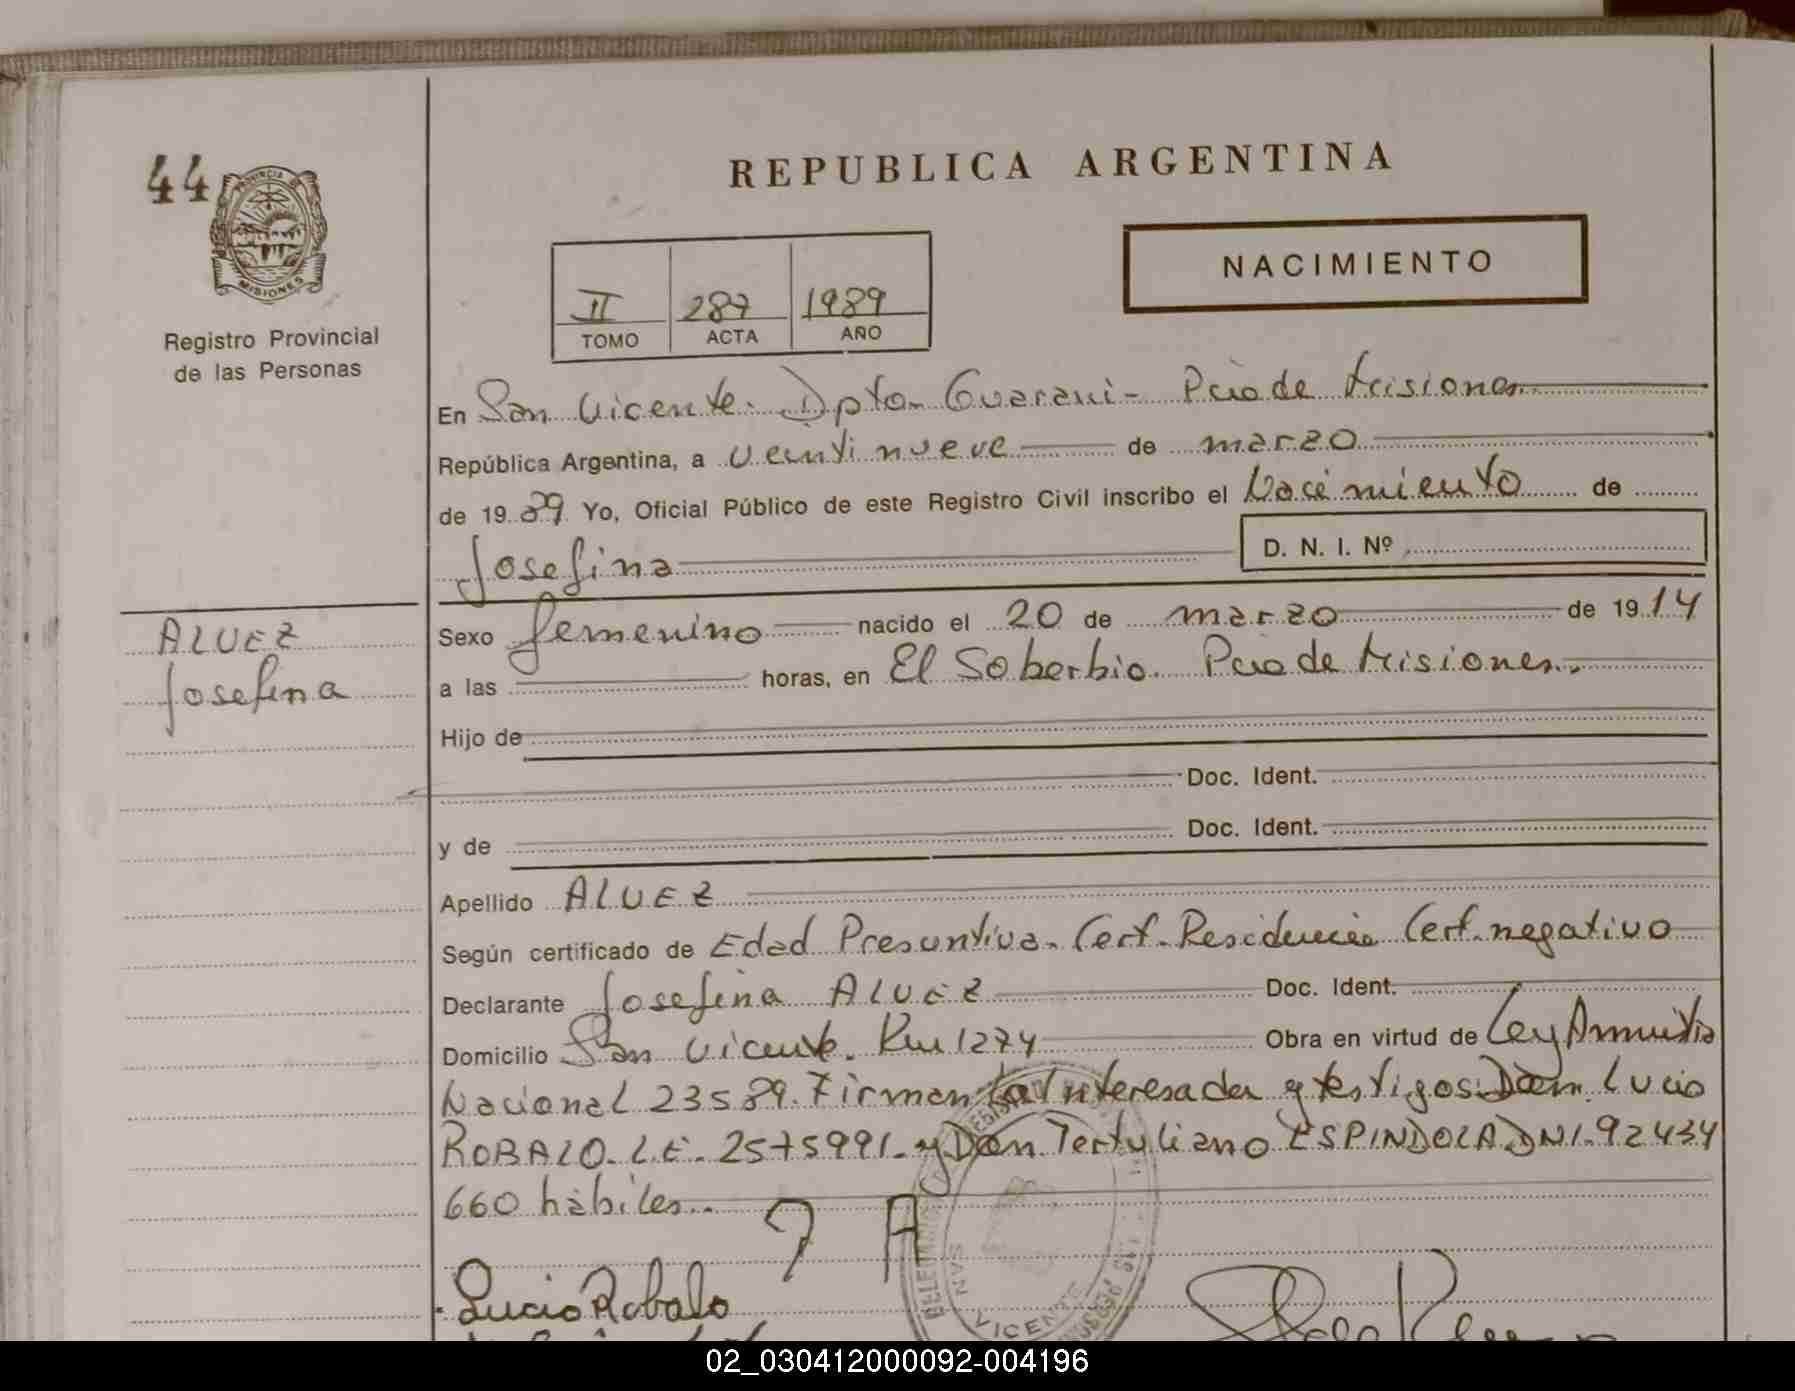 44
PROVINCIA DE
MISIONES
Registro Provincial
de las Personas
REPUBLICA ARGENTINA
NACIMIENTO
II 287 1989
TOMO ACTA AÑO
En San Vicente. Dpto. Guarani - Pcia de Misiones
República Argentina, a veinti nueve de marzo
de 1989 Yo, Oficial Público de este Registro Civil inscribo el Nacimiento de
Josefina D. N. I. Nº
ALVEZ
Josefina
Sexo femenino nacido el 20 de marzo de 1914
a las horas, en El Soberbio. Pcia de Misiones.
Hijo de
Doc. Ident.
y de Doc. Ident.
Apellido ALVEZ
Según certificado de Edad Presuntiva. Cert. Residencia Cert. negativo
Declarante Josefina ALVEZ Doc. Ident.
Domicilio San Vicente. Km 1274 Obra en virtud de Ley Amnistia
Nacional 23589. Firman la Interesada y testigos: Don Lucio
ROBALO. L.E. 2575991. y Don Tertuliano ESPINDOLA DNI. 92434
660 hábiles..
J A
Lucio Robalo
SAN VICENTE
02_030412000092-004196